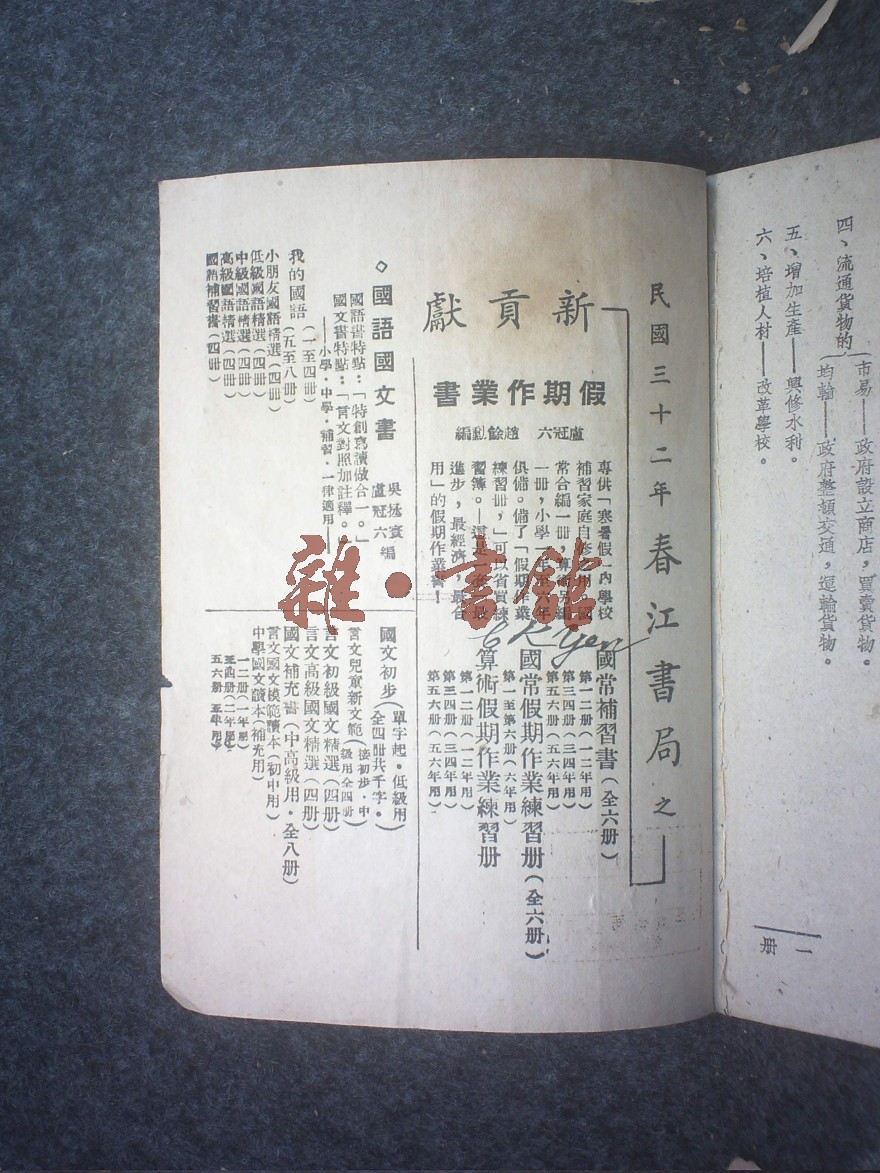 四、流通貨物的
市易——政府設立商店，買賣貨物。
均輸——政府整頓交通，運輸貨物。
五、增加生產——興修水利。
六、培植人材——改革學校。
一册
民國三十二年春江書局之
新貢獻
假期作業書
盧冠六 趙餘勳編
專供「寒暑假」內學校
補習家庭自修之用，國
常合編一冊，算術另編
一冊，小學一年至六年
俱備。備了「假期作業
練習冊，」可以省買練
習簿。——這是一套「最
進步，最經濟，最合
用」的假期作業書！
國常補習書（全六册）
第一二册（一二年用）
第三四册（三四年用）
第五六册（五六年用）
國常假期作業練習册（全六册）
第一至第六册（六年用）
算術假期作業練習册
第一二册（一二年用）
第三四册（三四年用）
第五六册（五六年用）
◇國語國文書
吳拯寰
盧冠六 編
國語書特點：「特創寫讀做合一。」
國文書特點：「言文對照加註釋。」
——小學·中學·補習·一律適用——
我的國語（一至四冊）
（五至八冊）
小朋友國語精選（四冊）
低級國語精選（四冊）
中級國語精選（四冊）
高級國語精選（四冊）
國語補習書（四冊）
國文初步（單字起·低級用）
（全四冊共千字·
言文兒童新文範（接初步·中
級用全四冊）
言文初級國文精選（四册）
言文高級國文精選（四册）
國文補充書（中高級用·全八册）
言文國文模範讀本（初中用）
中學國文讀本（補充用）
一二册（一年用）
三四册（二年用）
五六册（三年用）
C K Yen
雜·書館